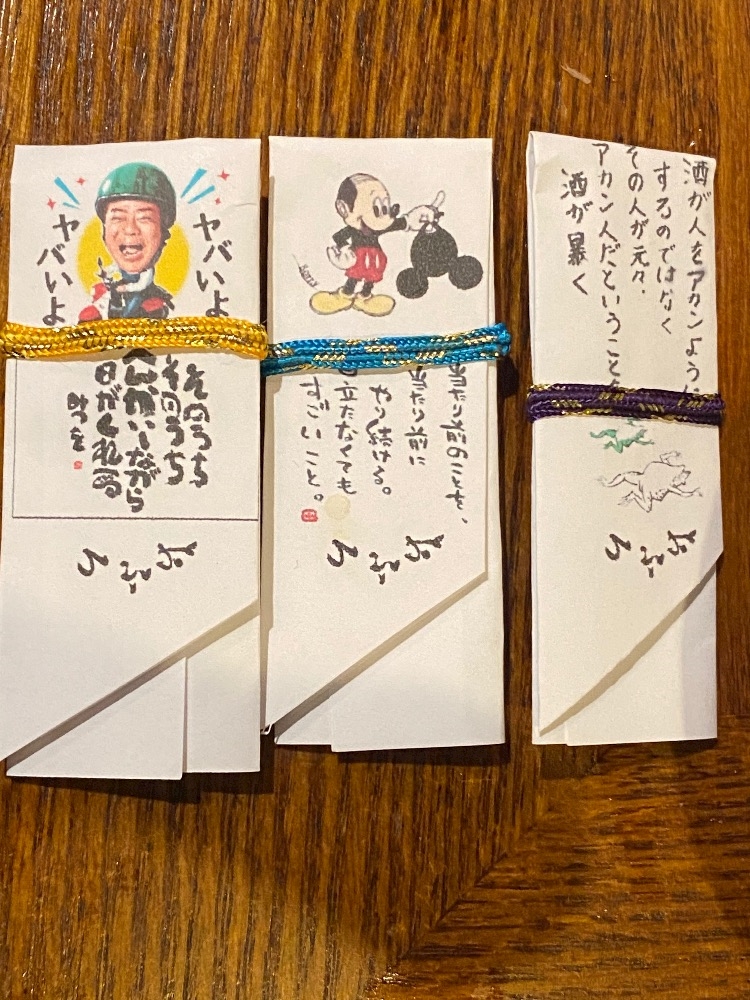 ヤバいよ
ヤバいよ
そのうち
そのうち
べんかいしながら
日がくれる
みつを
当たり前のことを、
当たり前に
やり続ける。
目立たなくても
すごいこと。
酒が人をアカンように
するのではなく
その人が元々、
アカン人だということを
酒が暴く